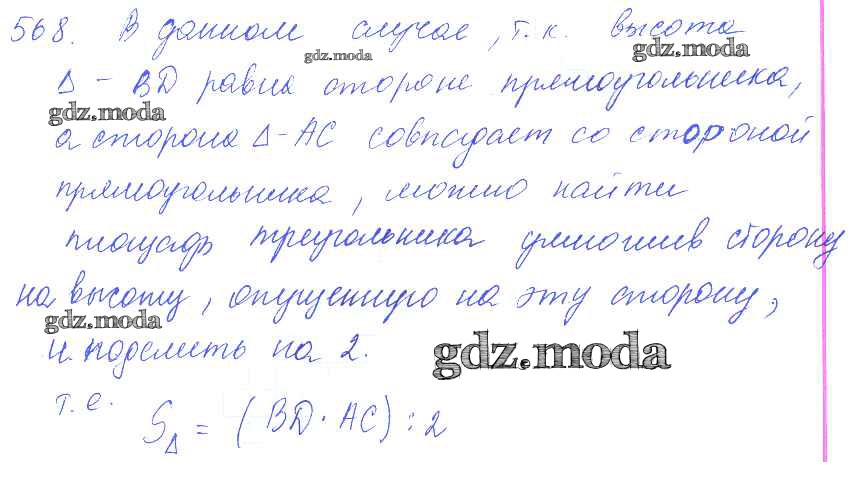 568. В данном случае, т.к. высота
gdz.moda gdz.moda
Δ - BD равна стороне прямоугольника,
gdz.moda
а сторона Δ-AC совпадает со стороной
прямоугольника, можно найти
площадь треугольника умножив сторону
на высоту, опущенную на эту сторону,
gdz.moda
и поделить на 2.
gdz.moda
т.е. S_Δ = (BD · AC) : 2